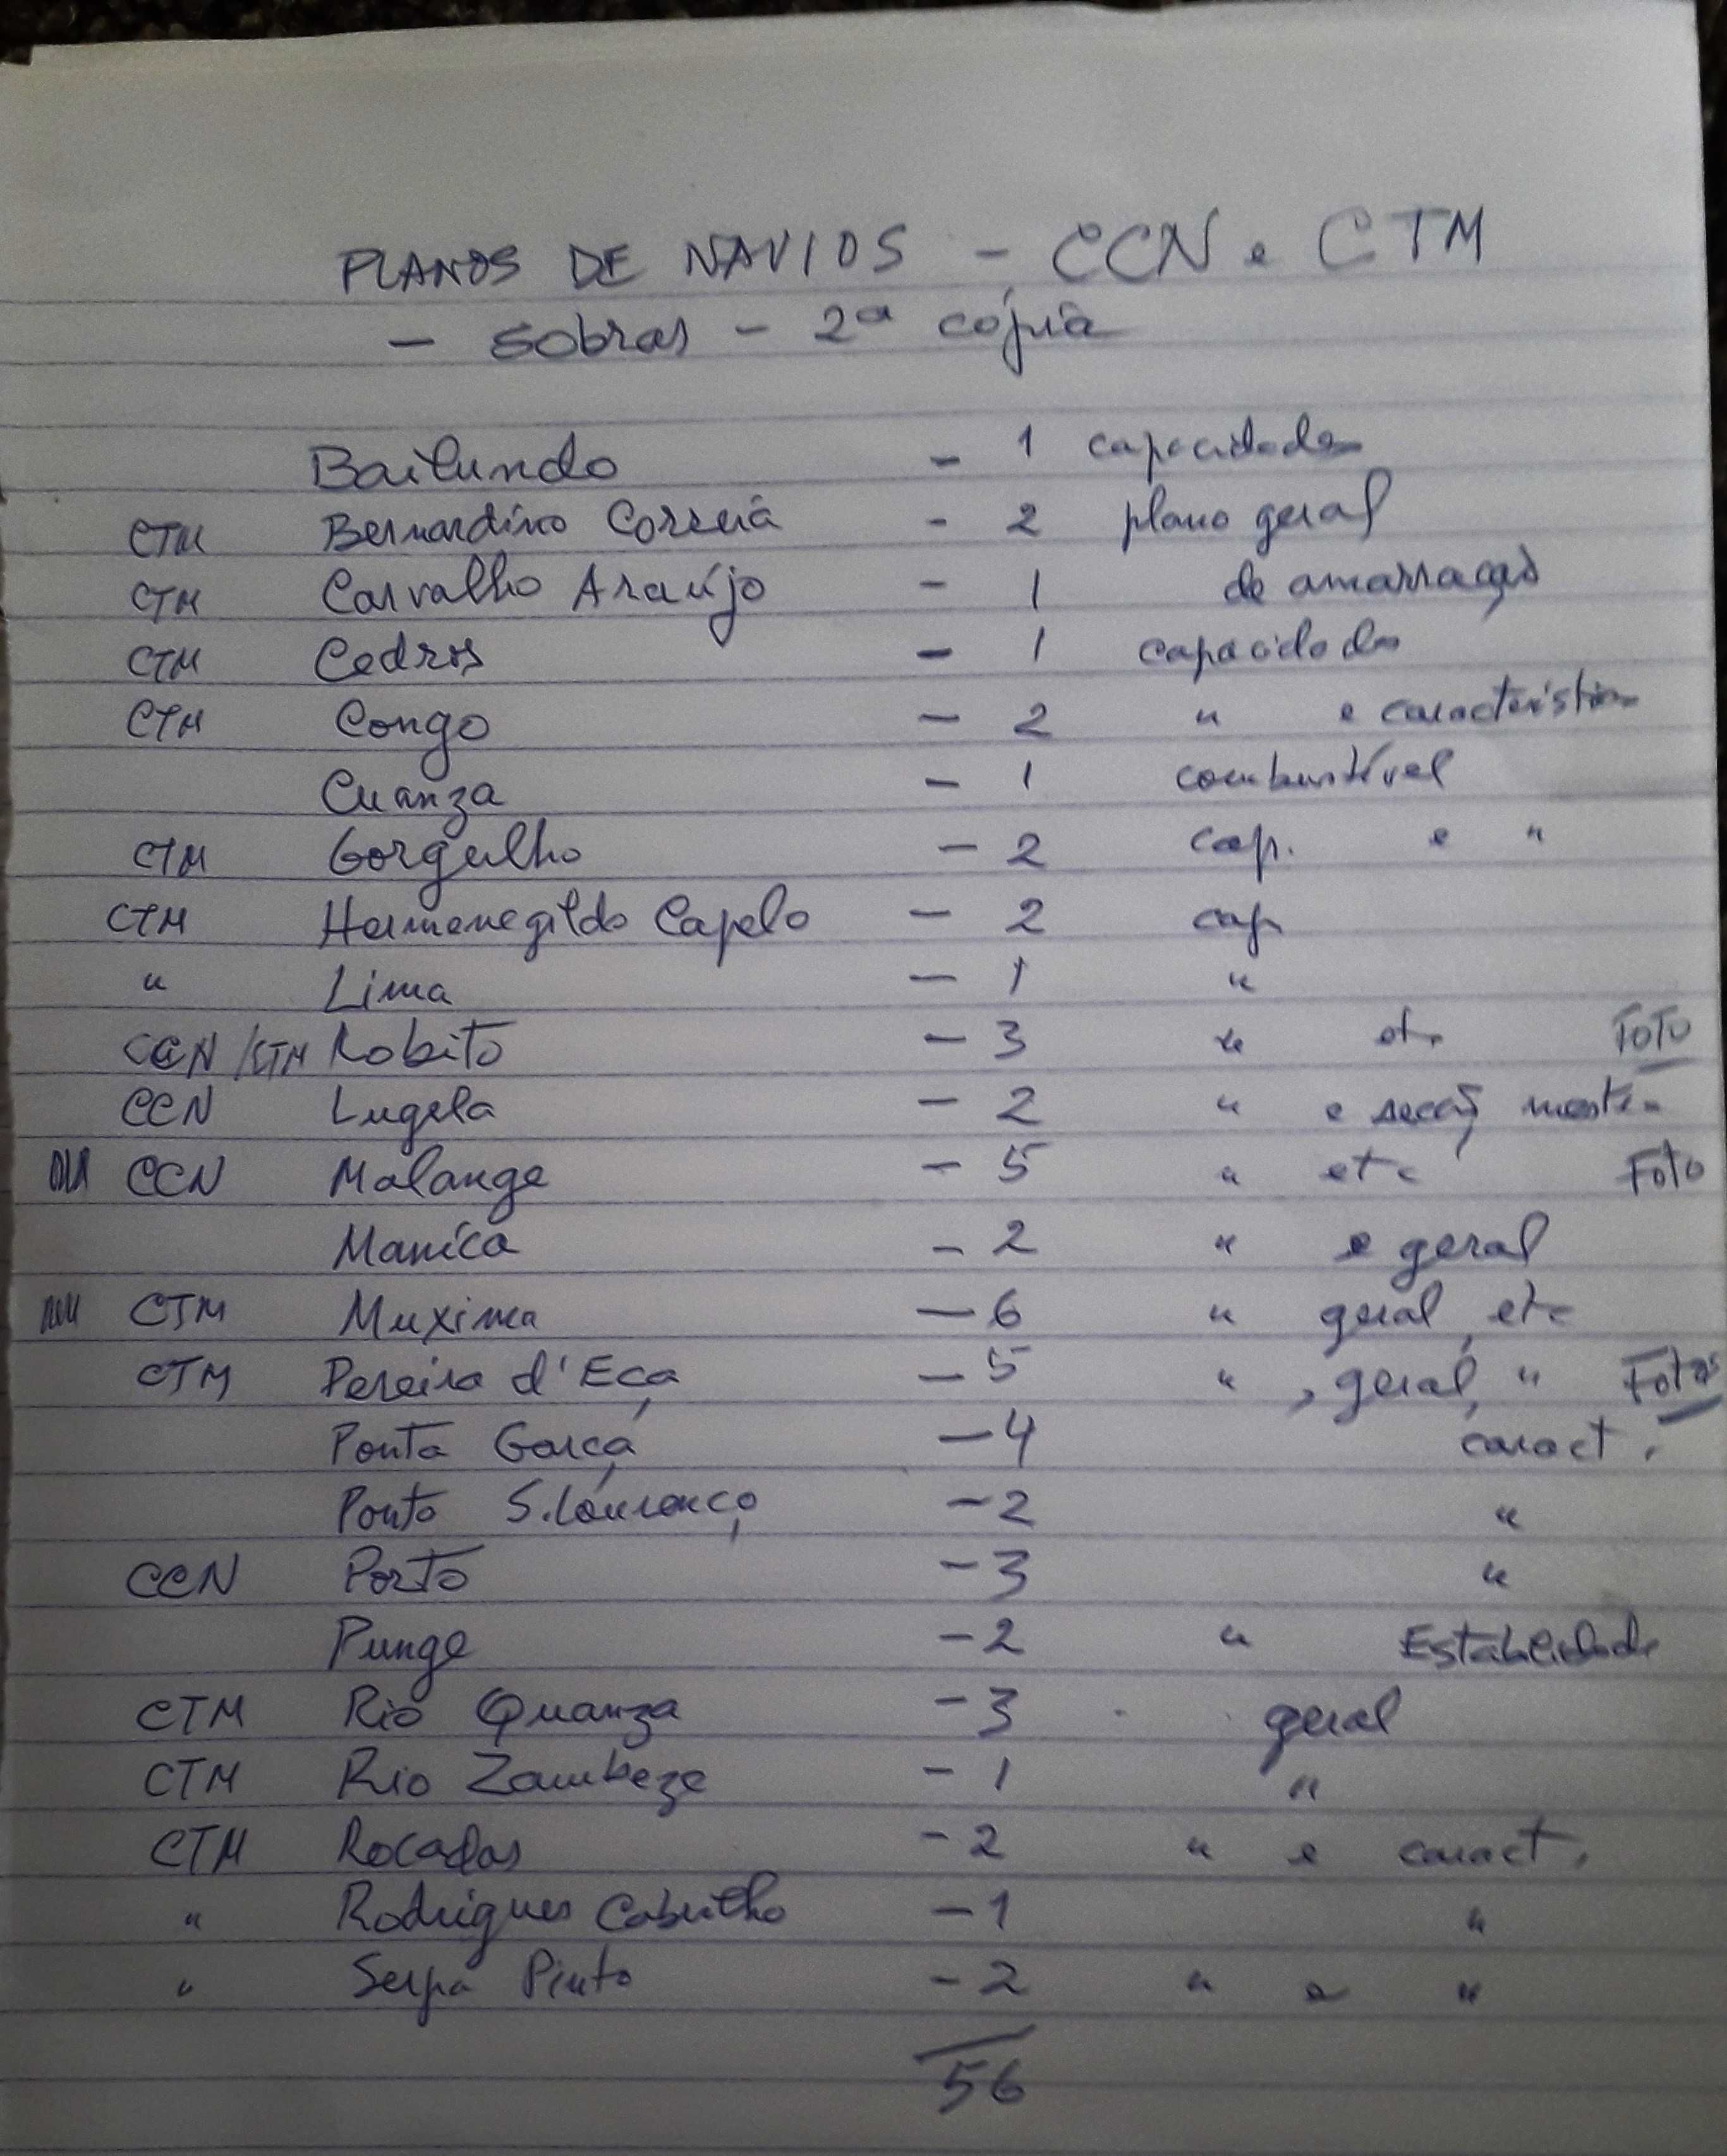 PLANOS DE NAVIOS - CCN e CTM
- Sobras - 2ª cópia
Bailundo - 1 capacidades
CTM Bernardino Correia - 2 plano geral
CTM Carvalho Araújo - 1 de amarração
CTM Cedros - 1 capacidades
CTM Congo - 2 " e características
Cuanza - 1 combustível
CTM Gorgulho - 2 cap. e "
CTM Hermenegildo Capelo - 2 cap
" Lima - 1 "
CCN/CTM Lobito - 3 " etc FOTO
CCN Lugela - 2 " e secção
CCN Malange - 5 " etc FOTO
Manica - 2 " e geral
CTM Muxima - 6 " geral, etc
CTM Pereira d'Eça - 5 " , geral, " FOTOS
Ponta Garça - 4 caract.
Ponta S. Lourenço - 2 "
CCN Porto - 3 "
Punge - 2 " Estabilidade
CTM Rio Quanza - 3 geral
CTM Rio Zambeze - 1 "
CTM Roçadas - 2 " e caract.
" Rodrigues Cabrilho - 1 "
" Serpa Pinto - 2 " e "
56